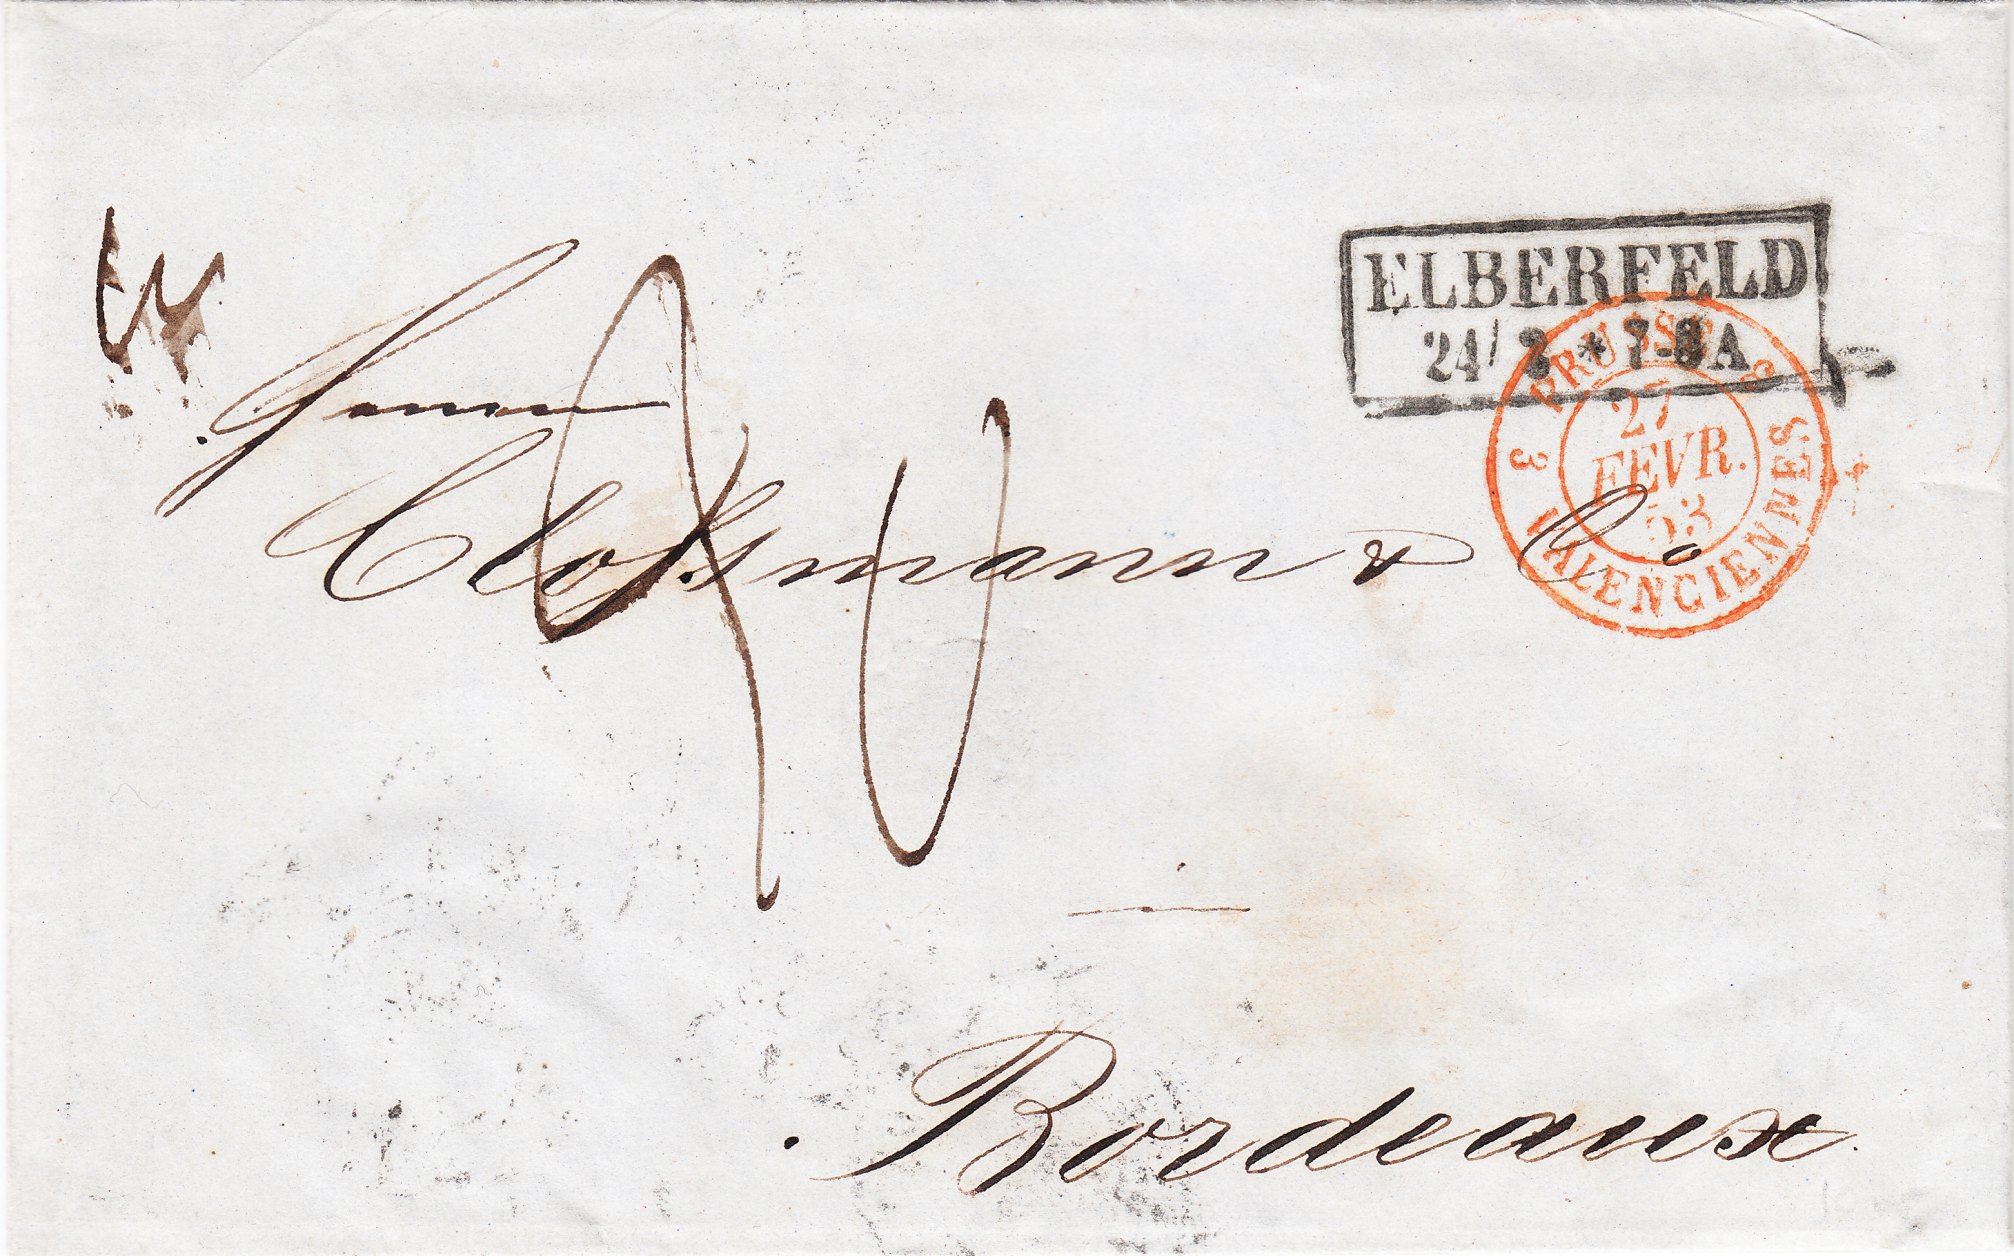 ELBERFELD
24/2 * 7-8 A
3 PRUSSE 3
27
FEVR.
53
VALENCIENNES
Herren
Closſsmann & Co
Bordeaux